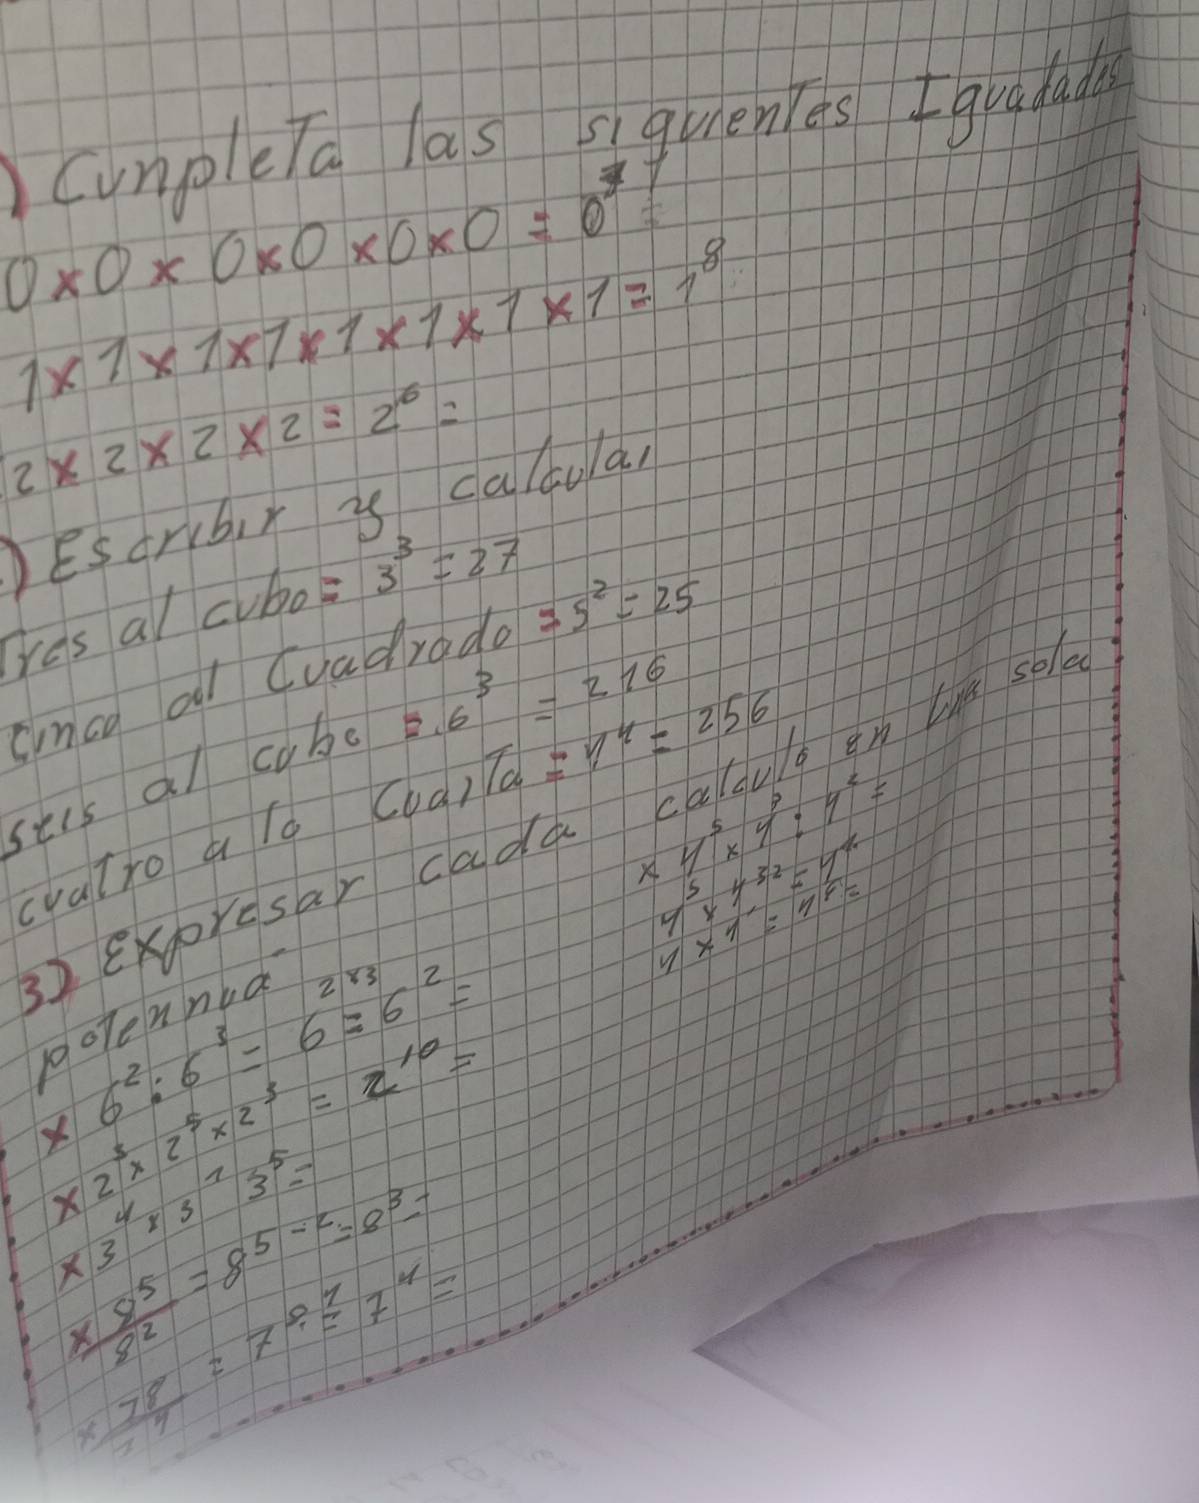 ) Cunpleta las siguientes Igualdades
0 x 0 x 0 x 0 x 0 x 0 = 0⁷ =
1 x 1 x 1 x 1 x 1 x 1 x 1 x 1 = 1⁸
2 x 2 x 2 x 2 = 2⁶ =
) Escribir y calcular
Tres al cubo = 3³ = 27
cinco al Cuadrado = 5² = 25
seis al cubo = 6³ = 216
cuatro a la Cuarta = 4⁴ = 256
3) Expresar cada calculo en una sola
potennua
x 6² : 6³ = 6²ˣ³ = 6² =
x 2³ x 2⁵ x 2³ = 2¹⁰ =
x 3⁴ x 3¹ 3⁵ =
x 8⁵/8² = 8⁵⁻² = 8³ =
x 78/74 = 7⁸⁻⁴ = 7⁴ =
x 4⁵ x 4³ : 4² =
4⁵ x 4³² = 4⁴
4 x 4¹ = 4⁵ =